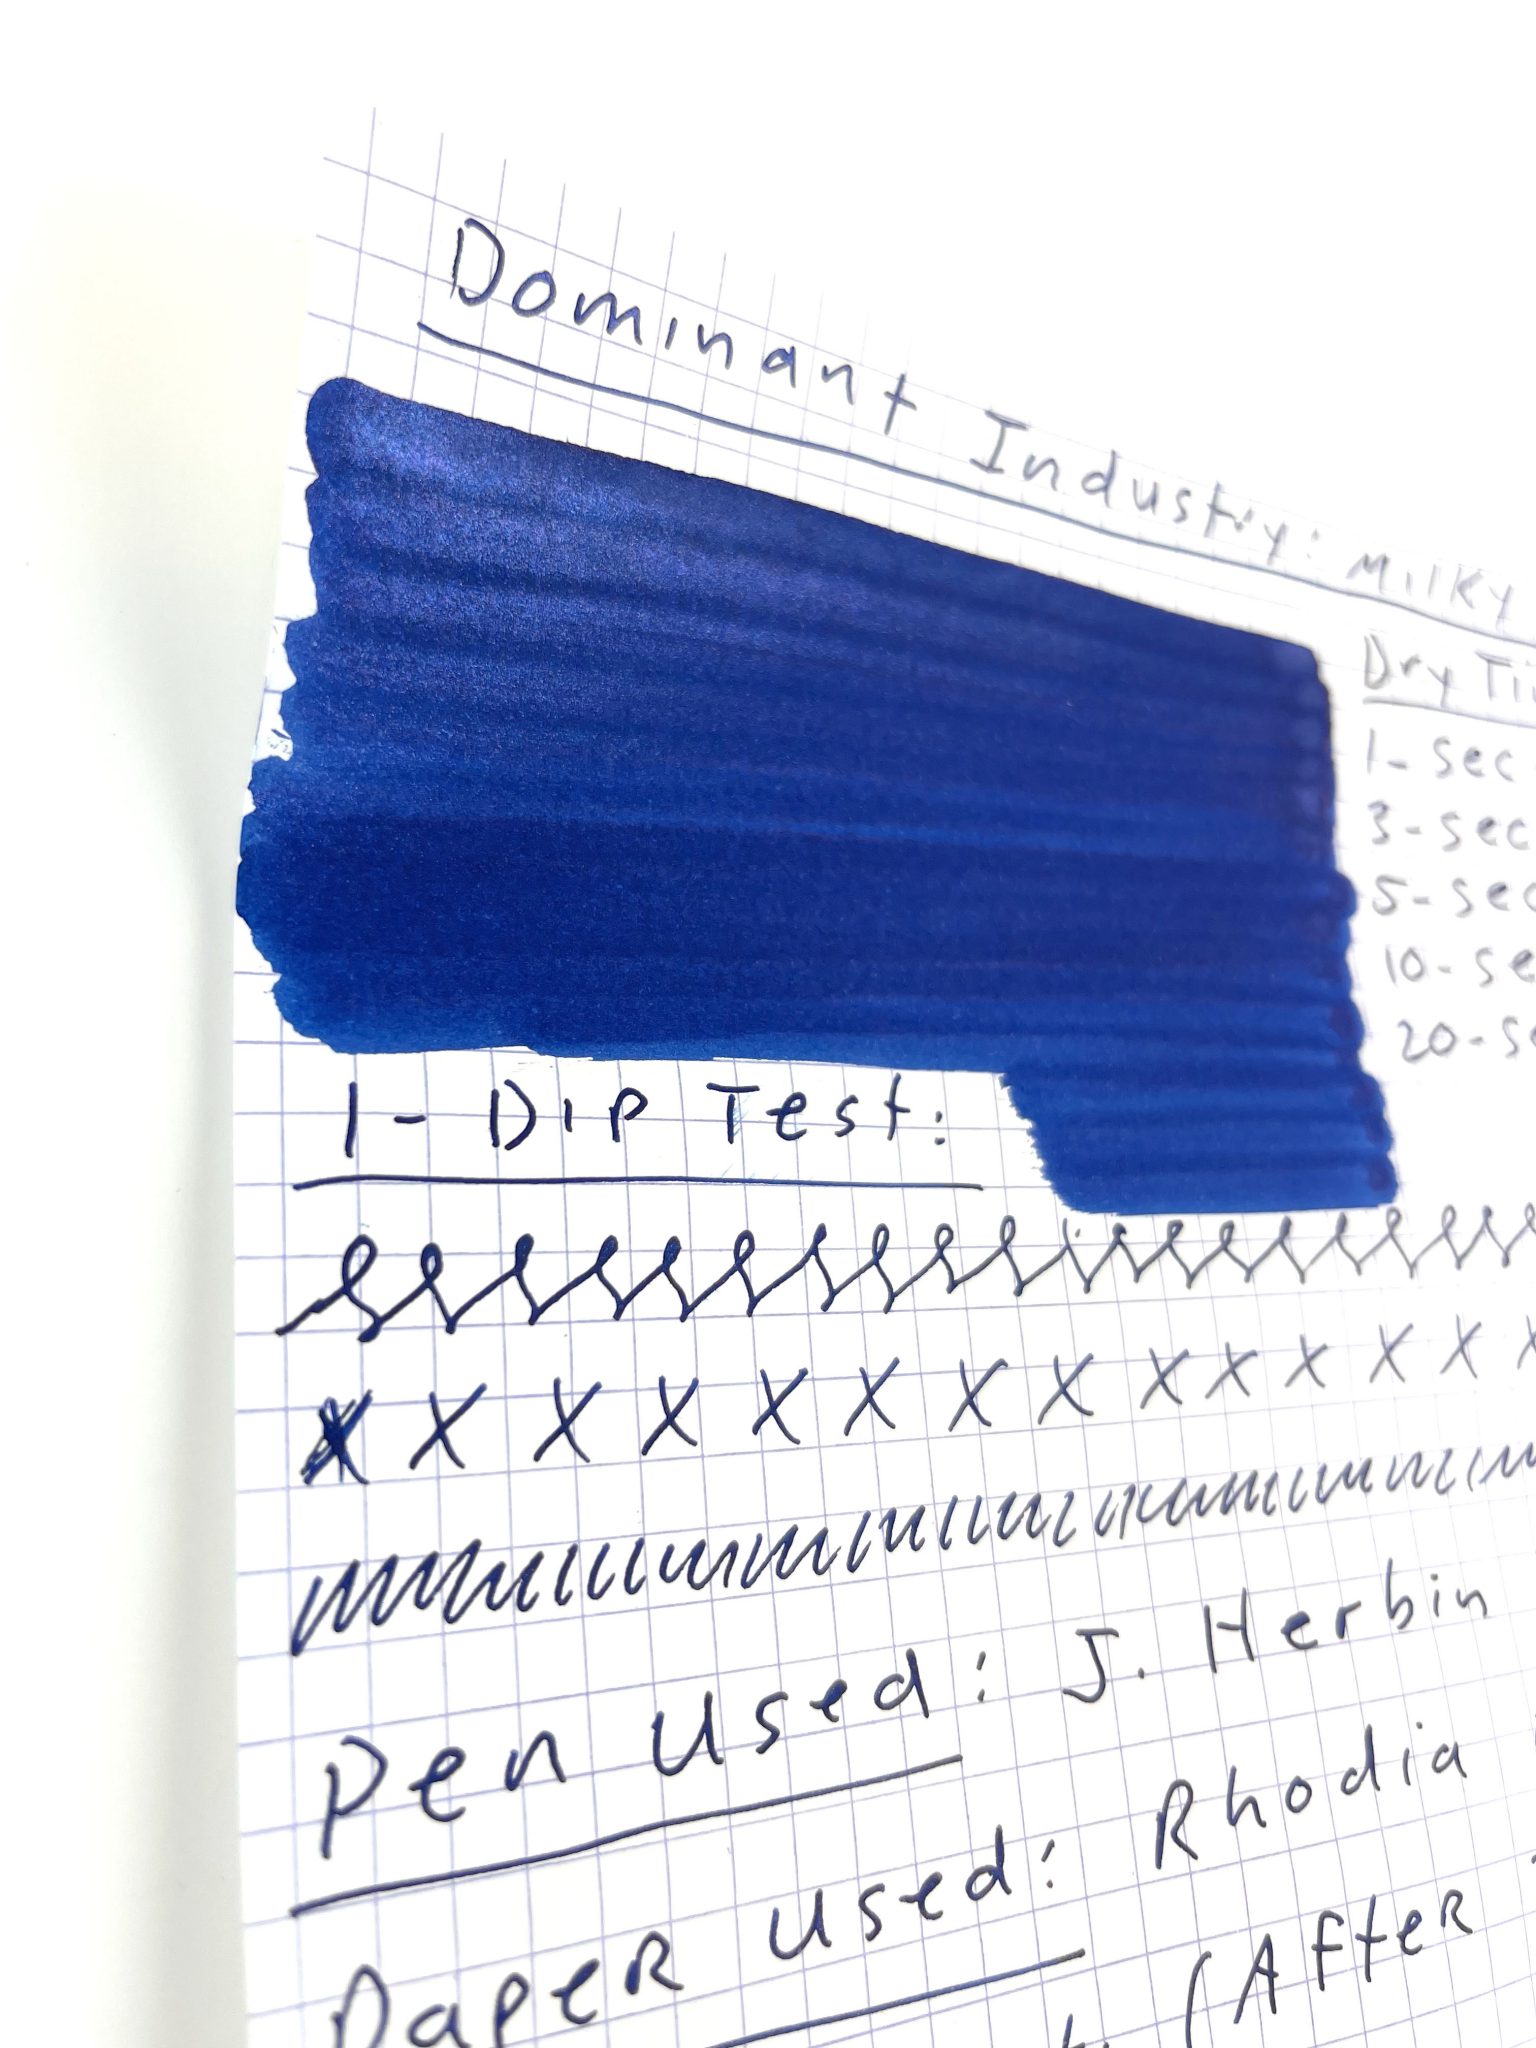 Dominant Industry: Milky
Dry
1-sec
3-sec
5-sec
10-se
20-s
1-Dip Test:
x x x x x x x x x x x x x
Pen Used: J. Herbin
Paper Used: Rhodia
(After